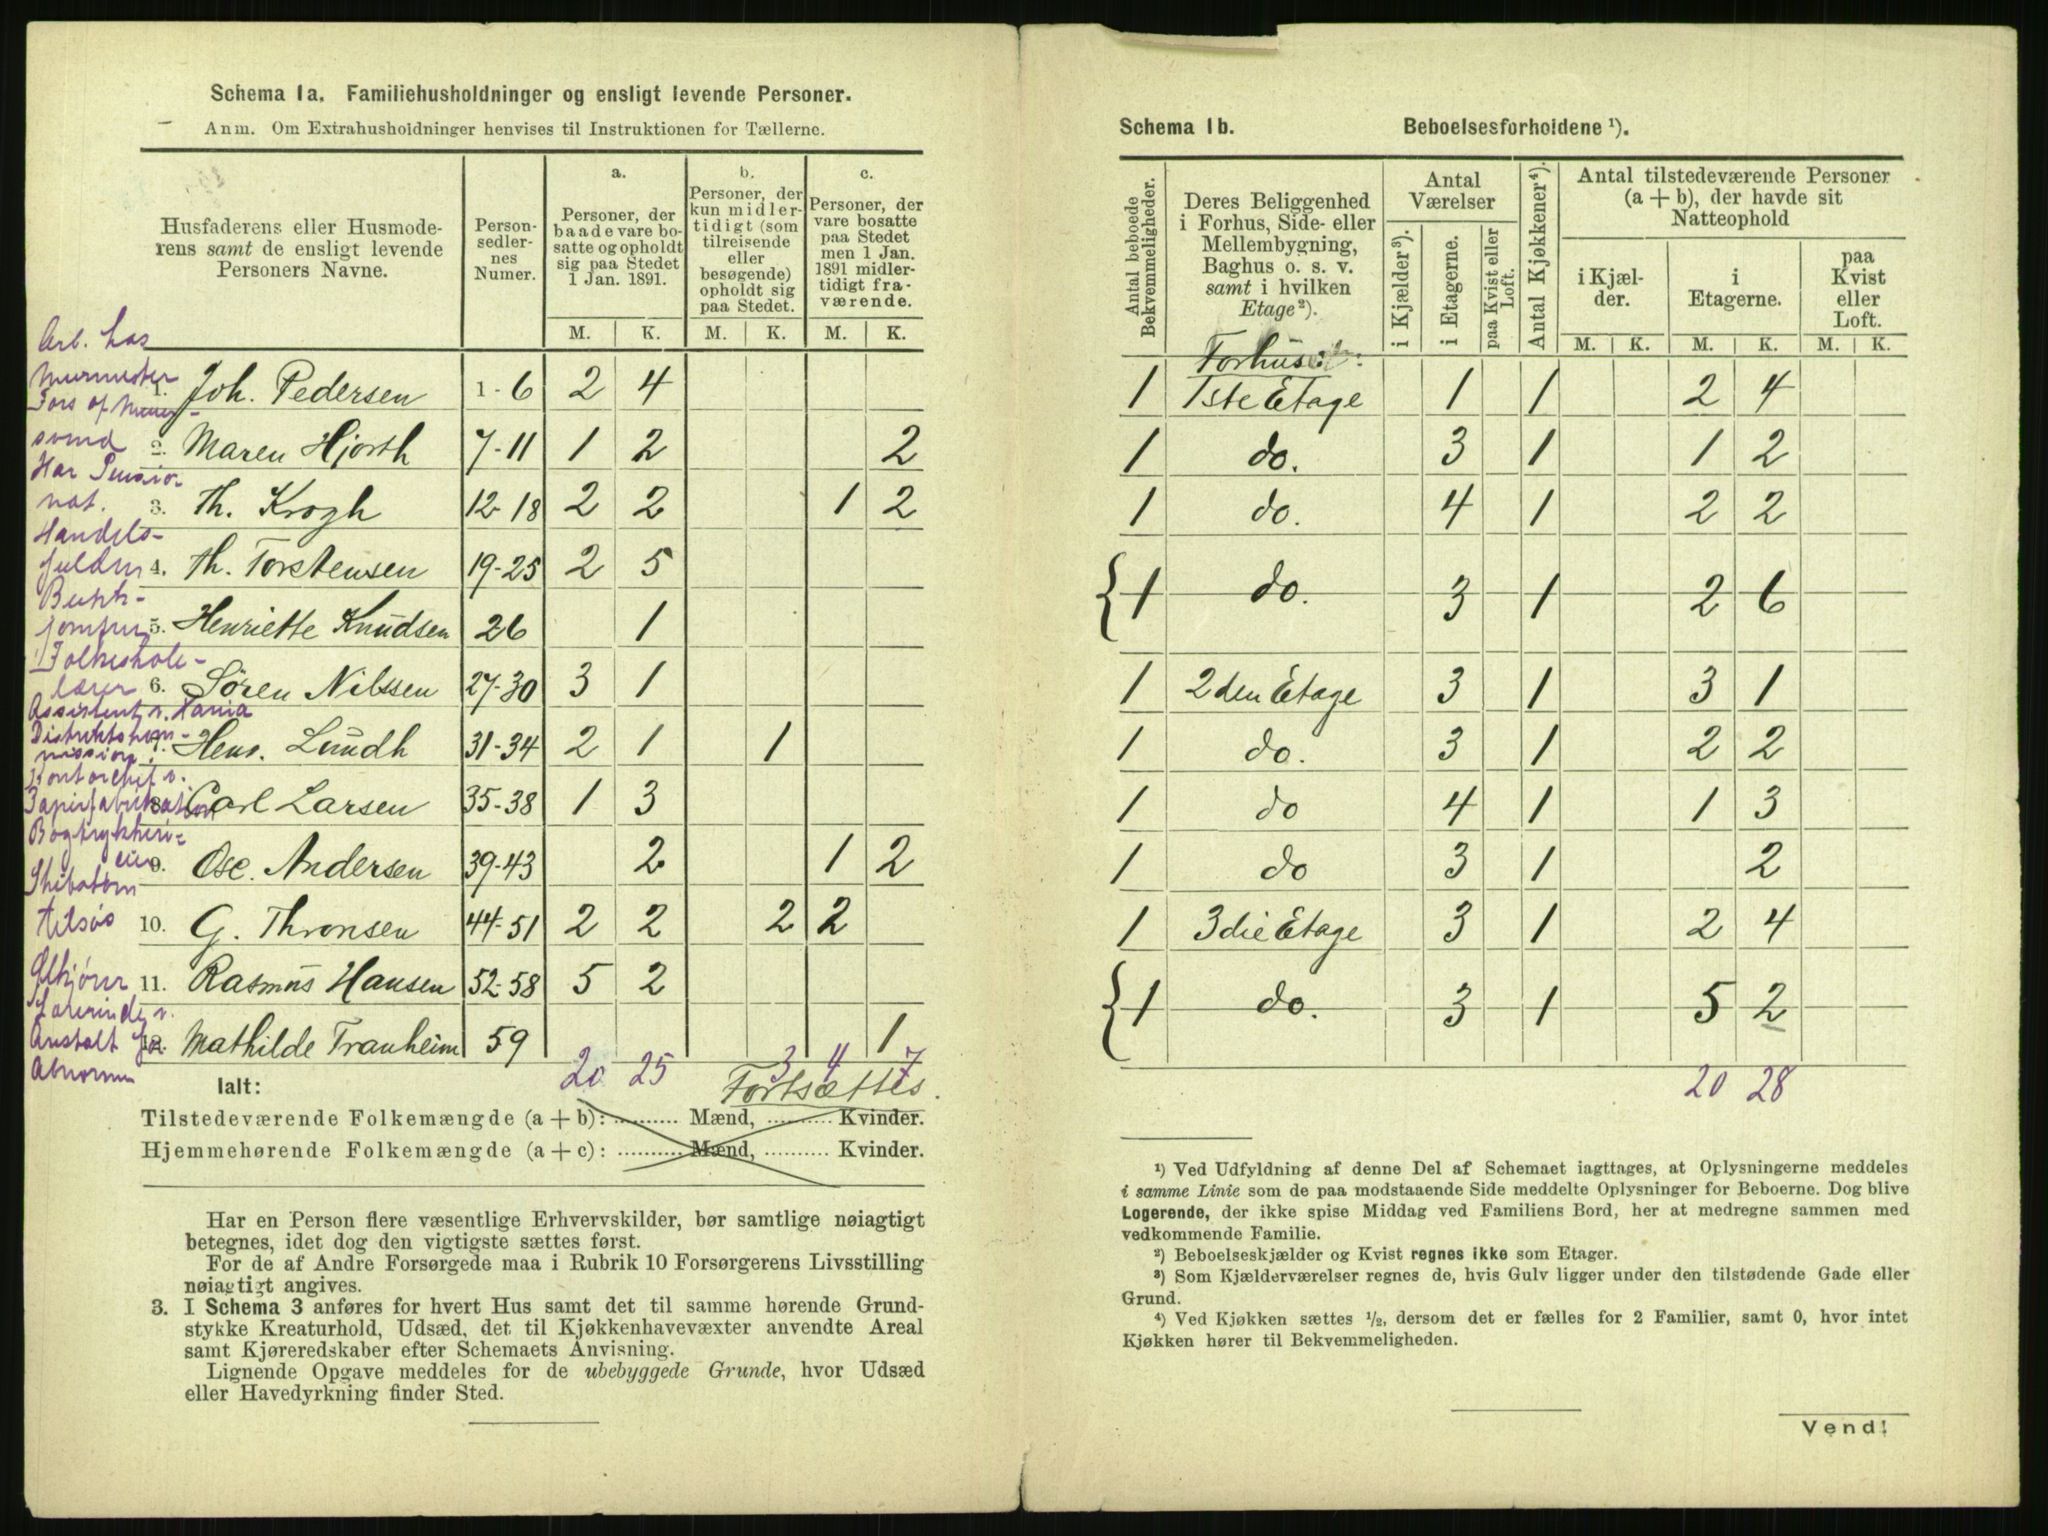 Schema 1a. Familiehusholdninger og ensligt levende Personer.
Anm. Om Extrahusholdninger henvises til Instruktionen for Tællerne.
Husfaderens eller Husmoderens samt de ensligt levende Personers Navne.
Personsedlernes Numer.
a. Personer, der baade vare bosatte og opholdt sig paa Stedet 1 Jan. 1891.
b. Personer, der kun midlertidigt (som tilreisende eller besøgende) opholdt sig paa Stedet.
c. Personer, der vare bosatte paa Stedet men 1 Jan. 1891 midlertidigt fraværende.
M. K. M. K. M. K.
Arb. hos
Murmester
1. Joh. Pedersen 1-6 2 4
Fors af Murer-
svend 2. Maren Hjorth 7-11 1 2 2
Har Pensio
nat. 3. Th. Krogh 12-18 2 2 1 2
Handels-
fuldm 4. Th. Torstensen 19-25 2 5
Butik-
jomfru 5. Henriette Knudsen 26 1
Folkeskole-
lærer 6. Søren Nilssen 27-30 3 1
Assistent v. Havne
Distriktskom-
mission 7. Hens. Lundh 31-34 2 1 1
Kontorchef v.
Papirfabrikation 8. Carl Larsen 35-38 1 3
Bogtrykkeri-
eier 9. Osc. Andersen 39-43 2 1 2
Skibstøm
10. G. Thronsen 44-51 2 2 2 2
Ølkjører 11. Rasmus Hansen 52-58 5 2
Lærerinde v.
Anstalt for 12. Mathilde Tranheim 59 1
Abnorme
Ialt: 20 25 3 4 7
Fortsættes.
Tilstedeværende Folkemængde (a + b): .......... Mænd, .......... Kvinder.
Hjemmehørende Folkemængde (a + c): .......... Mænd, .......... Kvinder.
Har en Person flere væsentlige Erhvervskilder, bør samtlige nøiagtigt
betegnes, idet dog den vigtigste sættes først.
For de af Andre Forsørgede maa i Rubrik 10 Forsørgerens Livsstilling
nøiagtigt angives.
3. I Schema 3 anføres for hvert Hus samt det til samme hørende Grund-
stykke Kreaturhold, Udsæd, det til Kjøkkenhavevæxter anvendte Areal
samt Kjøreredskaber efter Schemaets Anvisning.
Lignende Opgave meddeles for de ubebyggede Grunde, hvor Udsæd
eller Havedyrkning finder Sted.
Schema 1b. Beboelsesforholdene ¹).
Antal beboede Bekvemmeligheder.
Deres Beliggenhed i Forhus, Side- eller Mellembygning, Baghus o. s. v. samt i hvilken Etage²).
Antal Værelser
i Kjælder³).
i Etagerne.
paa Kvist eller Loft.
Antal Kjøkkener⁴).
Antal tilstedeværende Personer (a + b), der havde sit Natteophold
i Kjælder.
i Etagerne.
paa Kvist eller Loft.
M. K. M. K. M. K.
Forhuset:
1 1ste Etage 1 1 2 4
1 do. 3 1 1 2
1 do. 4 1 2 2
1 do. 3 1 2 6
1 2den Etage 3 1 3 1
1 do. 3 1 2 2
1 do 4 1 1 3
1 do 3 1 2
1 3die Etage 3 1 2 4
1 do. 3 1 5 2
20 28
¹) Ved Udfyldning af denne Del af Schemaet iagttages, at Oplysningerne meddeles
i samme Linie som de paa modstaaende Side meddelte Oplysninger for Beboerne. Dog blive
Logerende, der ikke spise Middag ved Familiens Bord, her at medregne sammen med
vedkommende Familie.
²) Beboelseskjælder og Kvist regnes ikke som Etager.
³) Som Kjælderværelser regnes de, hvis Gulv ligger under den tilstødende Gade eller
Grund.
⁴) Ved Kjøkken sættes ½, dersom det er fælles for 2 Familier, samt 0, hvor intet
Kjøkken hører til Bekvemmeligheden.
Vend!